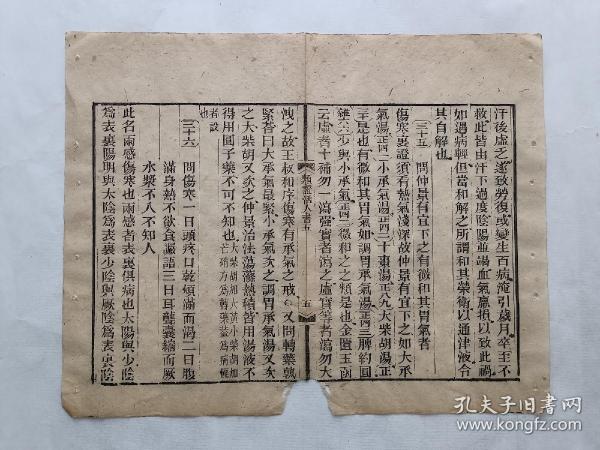 汗後虛之遂致勞復或變生百病淹引歲月卒至不
救此皆由汗下過度陰陽並竭血氣羸損以致此禍
如遇病輕但當和解之所謂和其榮衛以通津液令
其自解也
三十五 問仲景有宜下之有微和其胃氣者
傷寒裏證須看熱氣淺深故仲景有宜下之如大承
氣湯正四二小承氣湯正四三十棗湯正九九大柴胡湯正
三十是也有微和其胃氣如調胃承氣湯正四三脾約圓
雜六六少與小承氣正四三微和之之類是也金匱玉函
云虛者十補勿一瀉強實者瀉之虛實等者瀉勿大
類證活人書五
五
洩之故王叔和序傷寒有承氣之戒 又問轉藥孰
緊荅曰大承氣最緊小承氣次之調胃承氣湯又次
之大柴胡又次之仲景治法蕩滌熱積皆用湯液不
得用圓子藥不可不知也 大柴胡加大黃小柴胡加芒硝方為轉藥蓋為病輕
者設也
三十六 問傷寒一日頭疼口乾煩滿而渴二日腹
滿身熱不欲食譫語三日耳聾囊縮而厥
水漿不入不知人
此名兩感傷寒也兩感者表裏俱病也太陽與少陰
為表裏陽明與太陰為表裏少陰與厥陰為表裏陰
孔夫子旧书网
www.kongfz.com